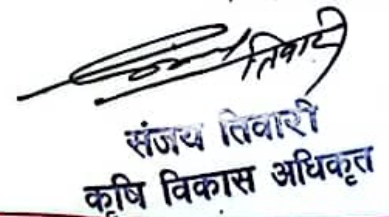 तिवारी
संजय तिवारी
कृषि विकास अधिकृत